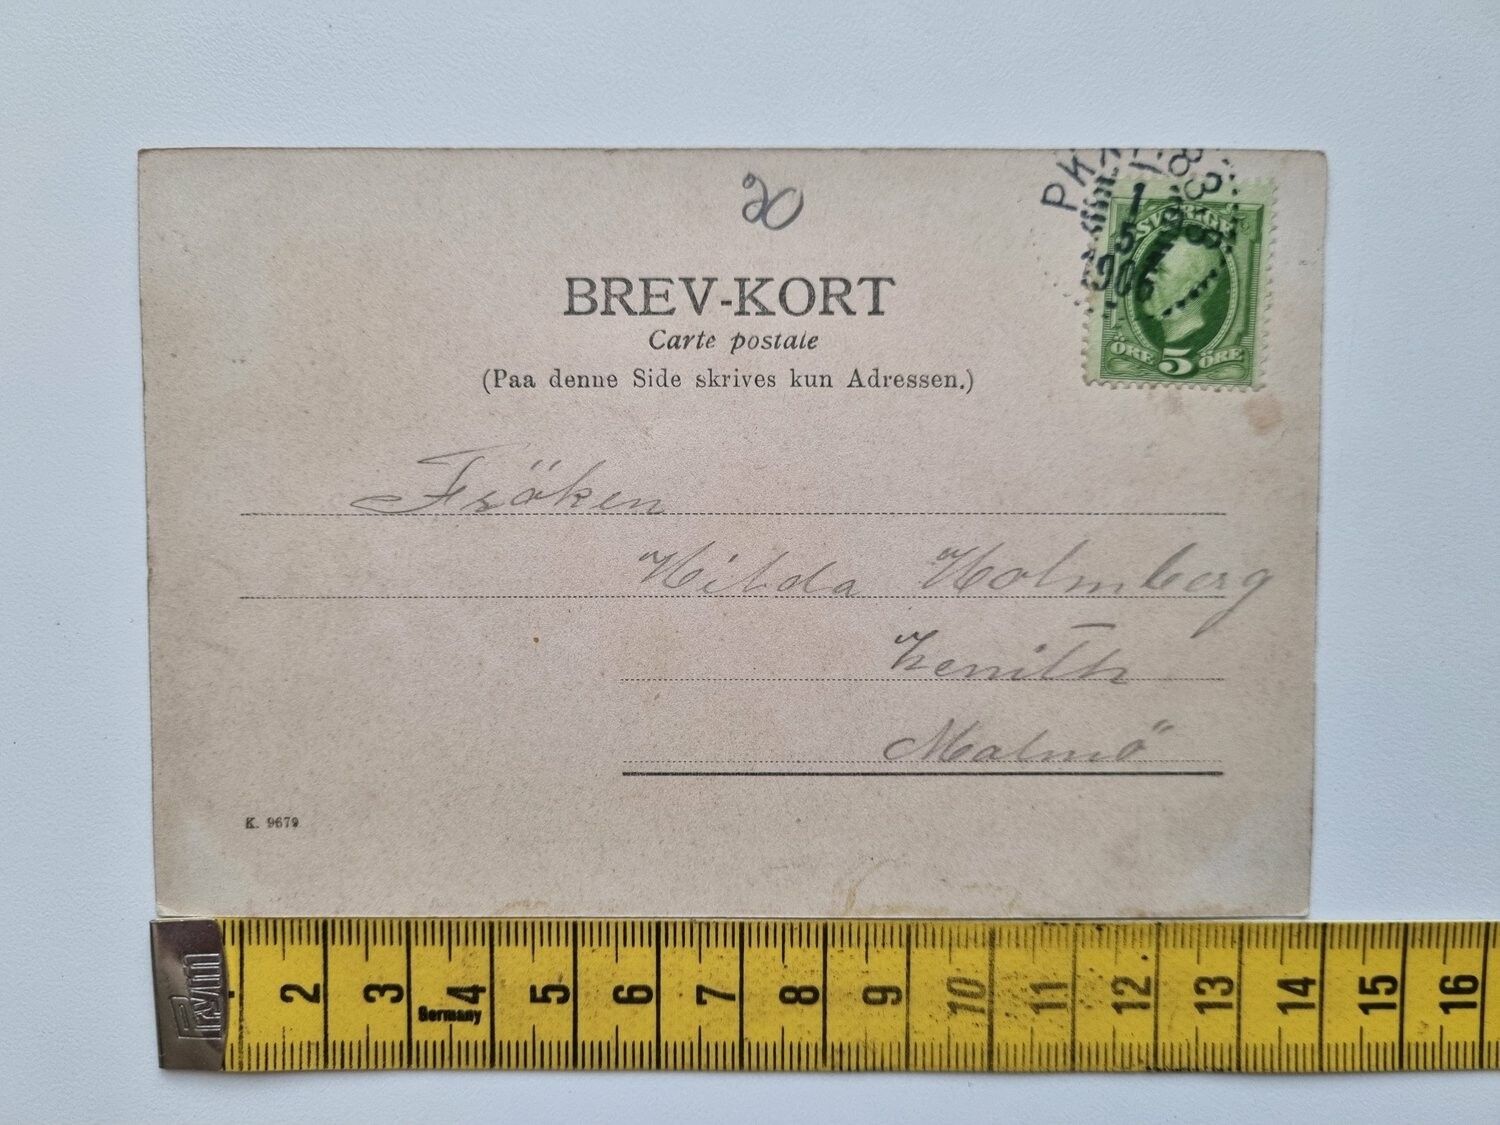 20
BREV-KORT
Carte postale
(Paa denne Side skrives kun Adressen.)
SVERIGE
1
5
1906
ÖRE 5 ÖRE
Fröken
Hilda Holmberg
Zenith
Malmö
K. 9679
Prym
Germany
2 3 4 5 6 7 8 9 10 11 12 13 14 15 16